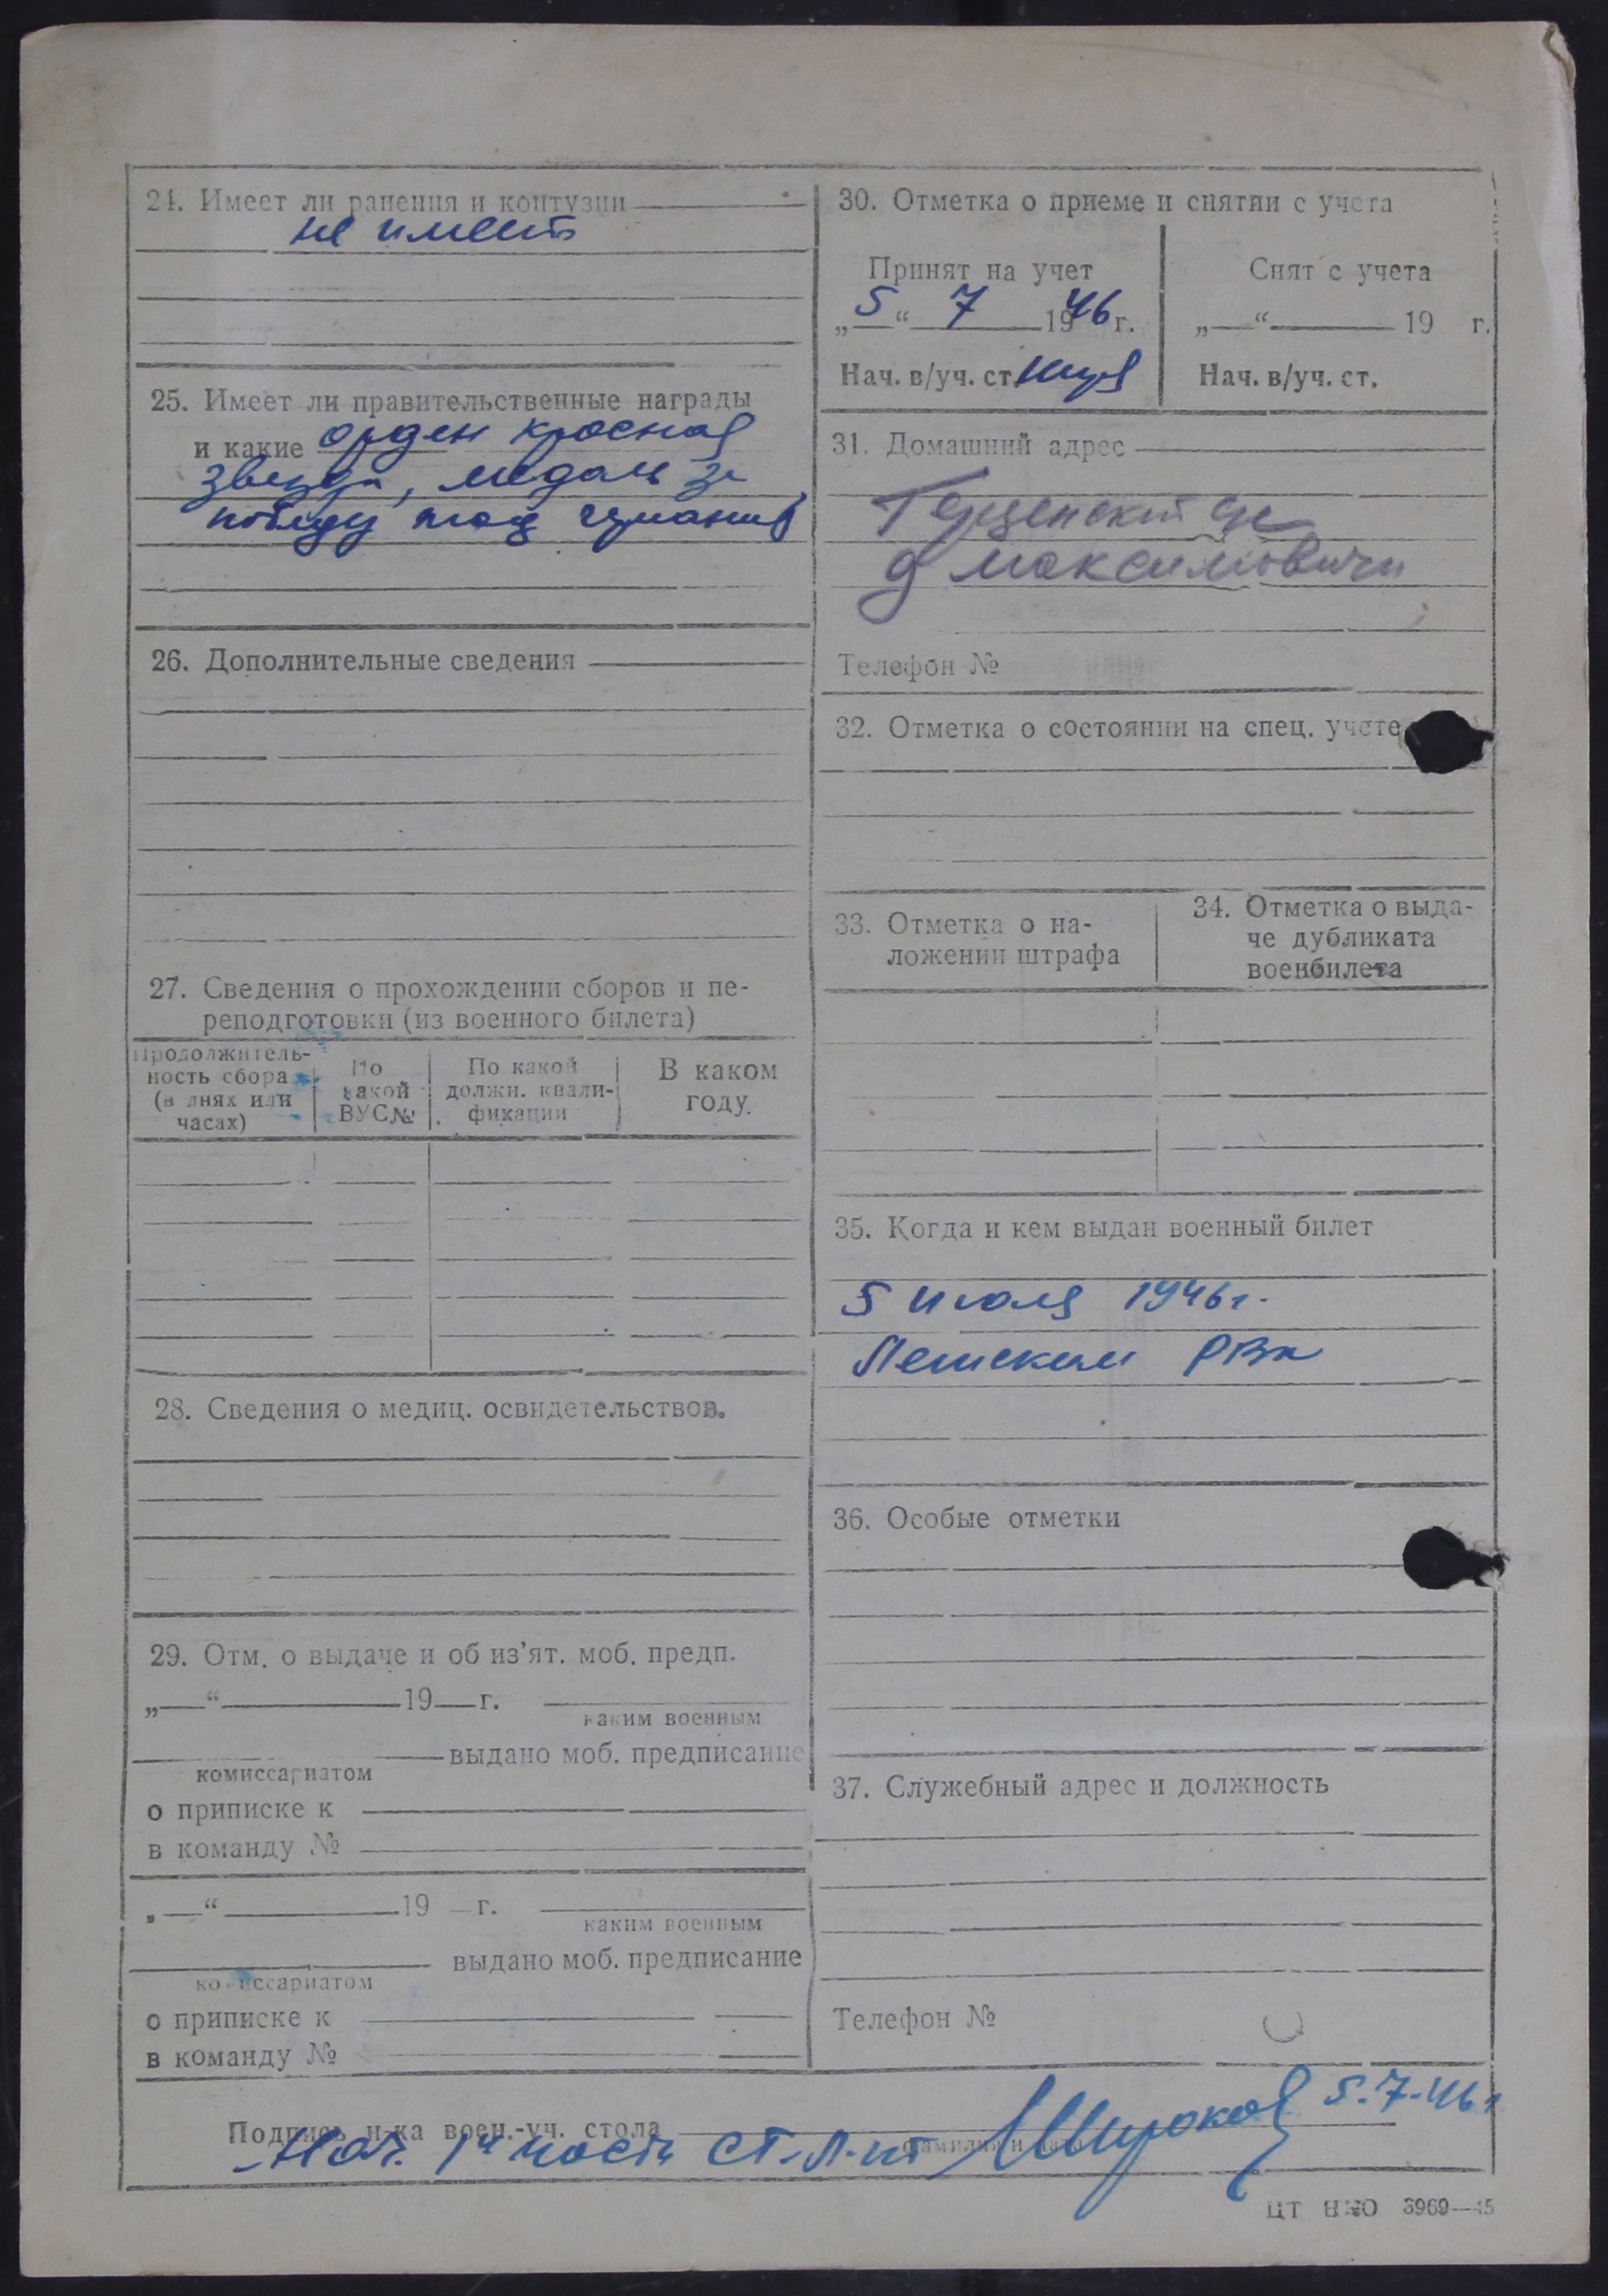 24. Имеет ли ранения и контузии
не имеет
25. Имеет ли правительственные награды
и какие орден красная
звезда, медаль за
победу над германией
26. Дополнительные сведения
27. Сведения о прохождении сборов и пе-
реподготовки (из военного билета)
Продолжитель-
ность сбора
(в днях или
часах)
По
какой
ВУС№
По какой
должн. квали-
фикации
В каком
году.
28. Сведения о медиц. освидетельствов.
29. Отм. о выдаче и об из’ят. моб. предп.
„—“ 19 г.
каким военным
выдано моб. предписание
комиссариатом
о приписке к
в команду №
„—“ 19 г.
каким военным
выдано моб. предписание
комиссариатом
о приписке к
в команду №
30. Отметка о приеме и снятии с учета
Принят на учет
„5“ 7 1946 г.
Нач. в/уч. ст.
Снят с учета
„—“ 19 г.
Нач. в/уч. ст.
31. Домашний адрес
д Максимовичи
Телефон №
32. Отметка о состоянии на спец. учете
33. Отметка о на-
ложении штрафа
34. Отметка о выда-
че дубликата
военбилета
35. Когда и кем выдан военный билет
5 июля 1946 г.
РВк
36. Особые отметки
37. Служебный адрес и должность
Телефон №
Подпись н-ка воен.-уч. стола
5.7.46 г
Нач. 1й части ст. л-нт Широков
ЦТ НКО 3969—45